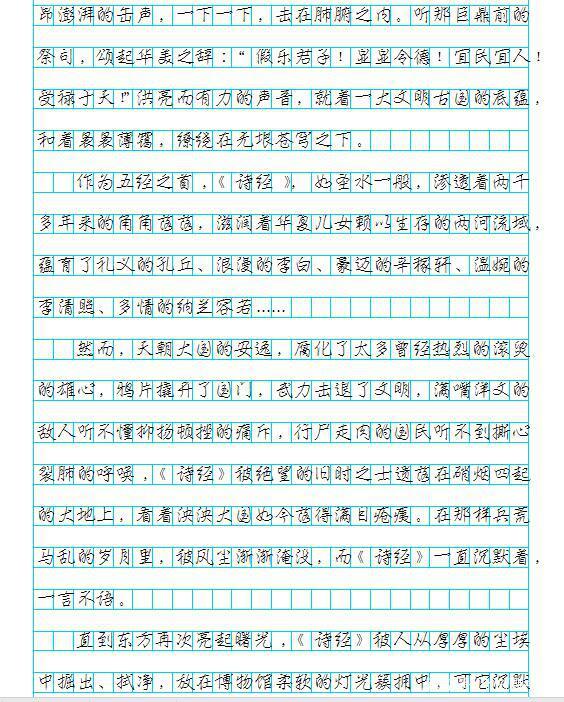 昂澎湃的缶声，一下一下，击在肺腑之内。听那巨鼎前的
祭司，颂起华美之辞：“假乐君子！显显令德！宜民宜人！
受禄于天！”洪亮而有力的声音，就着一大文明古国的底蕴，
和着袅袅薄霭，缭绕在无垠苍穹之下。
作为五经之首，《诗经》，如圣水一般，渗透着两千
多年来的角角落落，滋润着华夏儿女赖以生存的两河流域，
蕴育了礼义的孔丘、浪漫的李白、豪迈的辛稼轩、温婉的
李清照、多情的纳兰容若……
然而，天朝大国的安逸，腐化了太多曾经热烈的滚烫
的雄心，鸦片撬开了国门，武力击退了文明，满嘴洋文的
敌人听不懂抑扬顿挫的痛斥，行尸走肉的国民听不到撕心
裂肺的呼唤，《诗经》被绝望的旧时之士遗落在硝烟四起
的大地上，看着泱泱大国如今落得满目疮痍。在那样兵荒
马乱的岁月里，被风尘渐渐淹没，而《诗经》一直沉默着，
一言不语。
直到东方再次亮起曙光，《诗经》被人从厚厚的尘埃
中掘出、拭净，放在博物馆柔软的灯光簇拥中，可它沉默